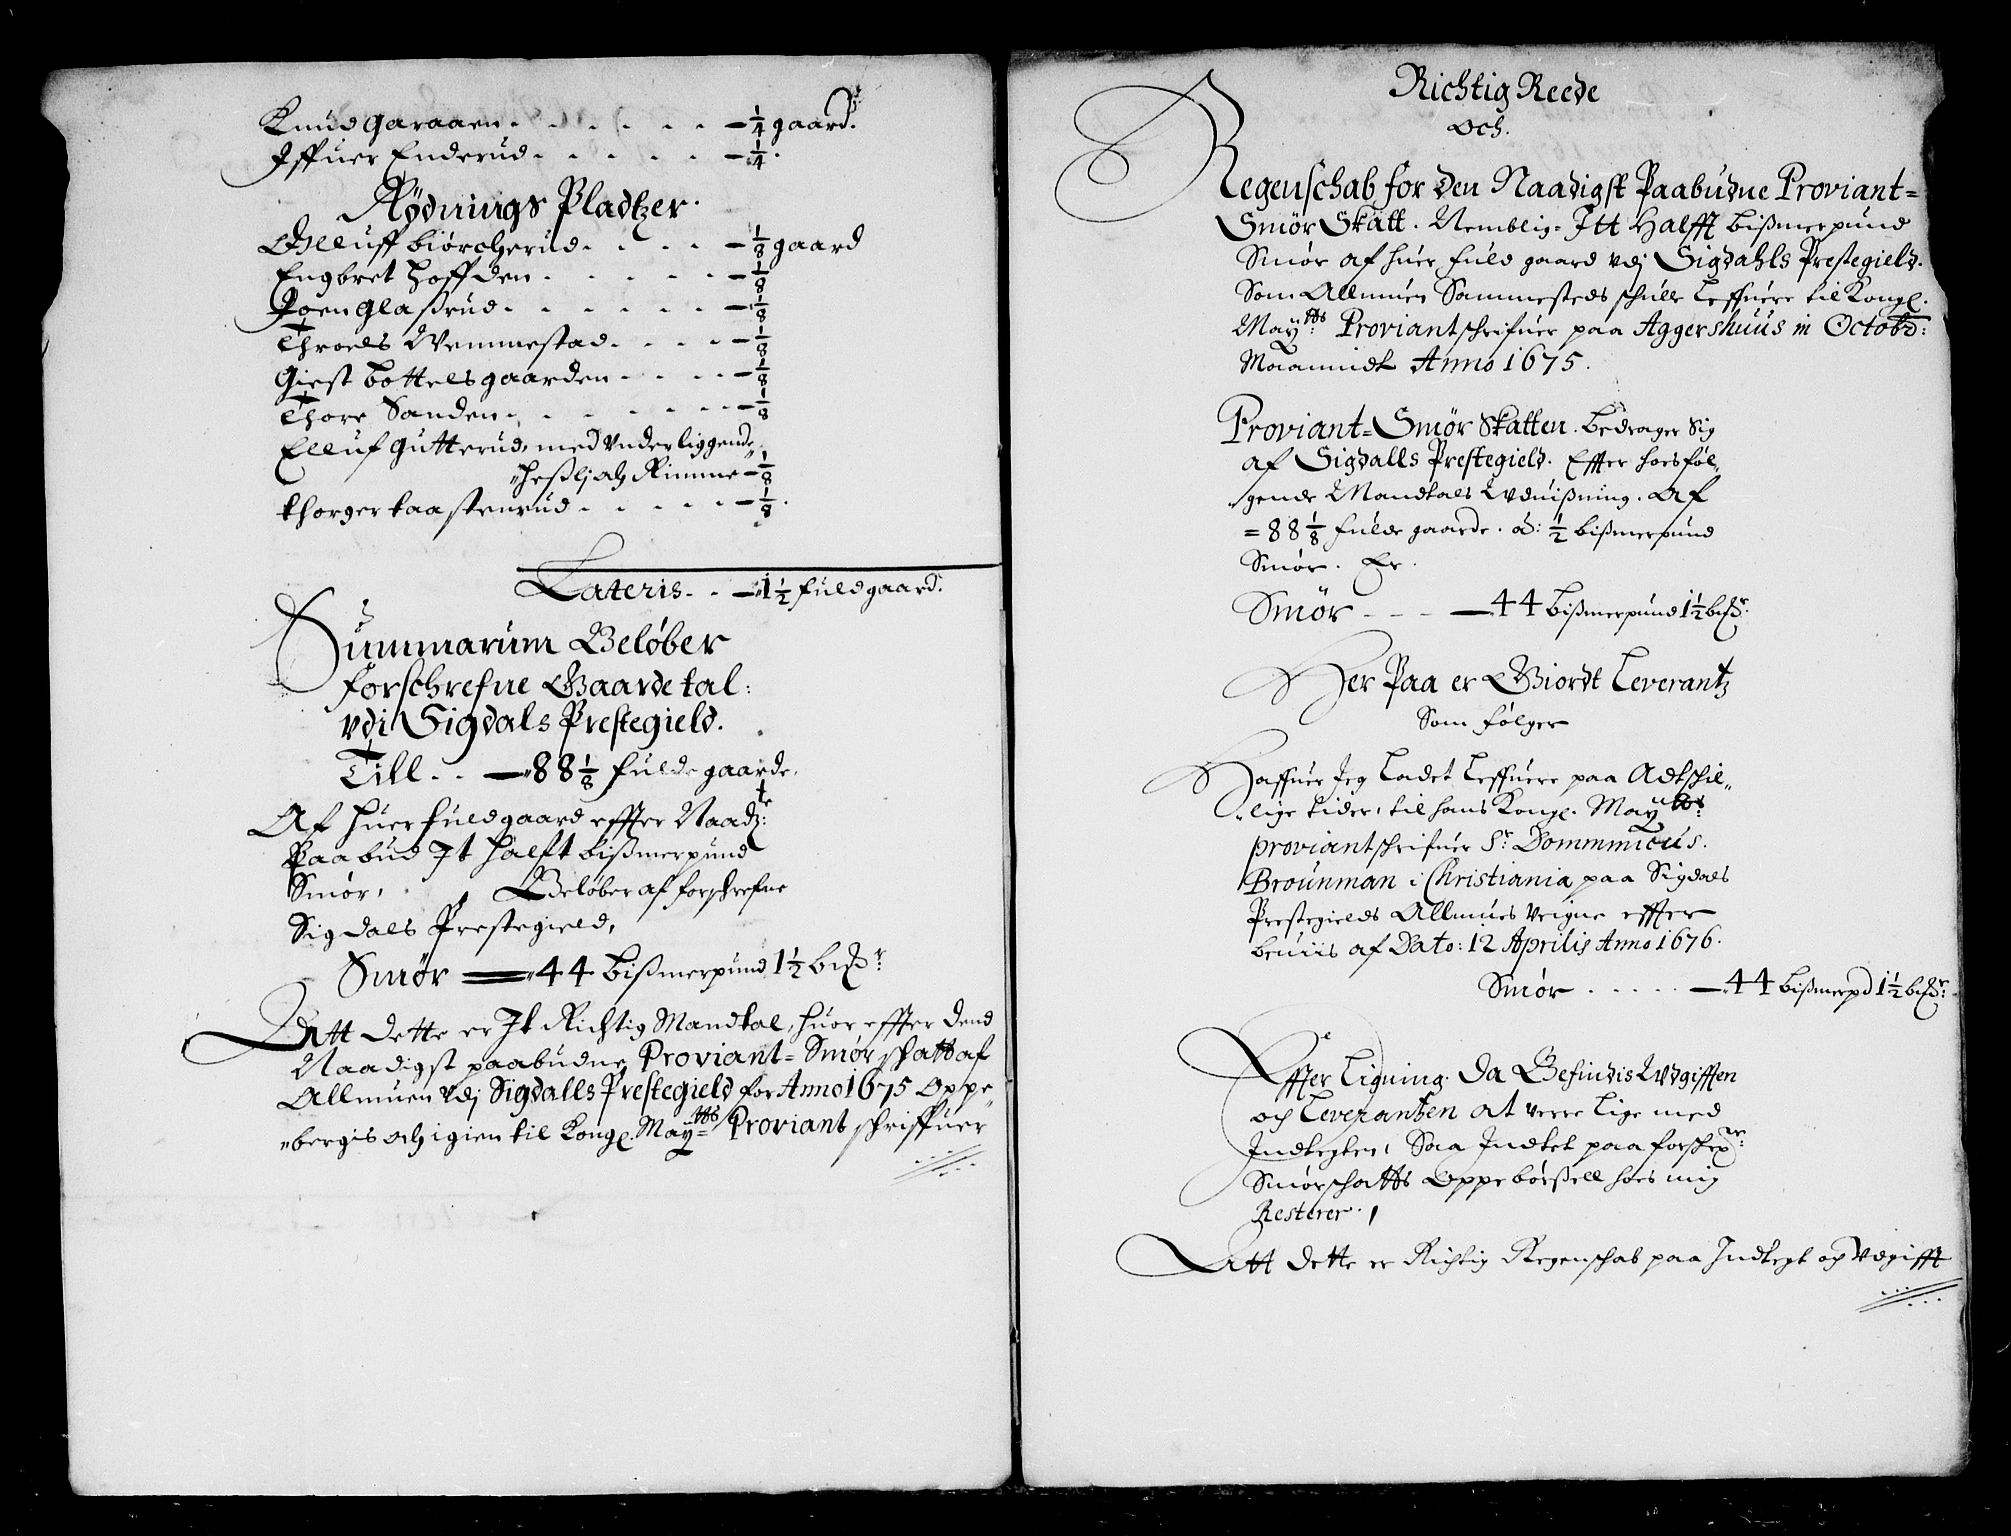 Knud Garaaen . . . . . . — 1/4 gaard.
Iffuer Enderud . . . . . — 1/4.
Rødnings Pladtzer.
Olluff biørcherud . . . . — 1/8 gaard
Engbret hoffden . . . . . — 1/8
Joen Glaßrud . . . . . . — 1/8
Throels Wemmestad . . . . — 1/8
Giest bottelsgaarden . . . . — 1/8
Thore Sanden . . . . . . — 1/8
Elluf Gutterud, med vnderliggende
heßlj och Rimme — 1/8
thorger kaastenrud . . . . . — 1/8.
Lateris . . — 1 1/2 fuldgaard.
Summarum Beløber
forschrefne Gaarde tal:
vdi Sigdals Prestegield.
Till . . — 88 1/8 fulde gaarde.
Af huer fuldgaard effter Naadz: te
Paabud It halft bißmerpund
Smør, Beløber af forschrefne
Sigdals Prestegield,
Smør — 44 bißmerpund 1 1/2 bißr:
Att dette er It Richtig Mandtal, huor effter dend
Naadigst paabudne Proviant= Smør schatt af
Allmuen vdj Sigdalls Prestegield for Anno 1675 Oppe
bergis och igien til Kongl. Maytts Proviant schriffuer
Richtig Reede
Och.
Regenschab for den Naadigst Paabudne Proviant=
Smør Skatt. Nemblig= Itt Halfft bißmerpund
Smør af huer fuld gaard vdj Sigdahls Prestegield.
Som Allmuen Sammesteds schulle Leffuere til Kongl.
Maytts: Proviantschrifuer paa Aggershuus in Octobr:
Maanidt Anno 1675.
Proviant= Smør Skatten. bedrager Sig
af Sigdalls Prestegield. Effter hoesføl„
„gende Mandtals Udvißning. Af
= 88 1/8 fulde gaarde. á: 1/2 bißmerpund
Smør. Er.
Smør - - - — 44 bißmerpund 1 1/2 bißr.
Her Paa er Giordt Leverantz
Som følger
Haffuer Jeg Ladet Leffuere paa Adtschil„
„lige tider, til hans Kongl. Maytts:
proviantschrifuer Sr. Dommmicus.
Brounman i Christiania paa Sigdals
Prestegields Allmues Veigne effter
beuiis af Dato: 12 Aprilis Anno 1676.
Smør . . . . . — 44 bißmerpd 1 1/2 bißr:
Effter Ligning. Da Befindis Udgifften
och Leverantzen at verre Lige med
Indtegten, Saa Indtet paa forschrne:
Smørschatts Oppebørßell hoes mig
Resterer.
Att dette er Richtig Regenschab paa Indtegt och Vdgifft